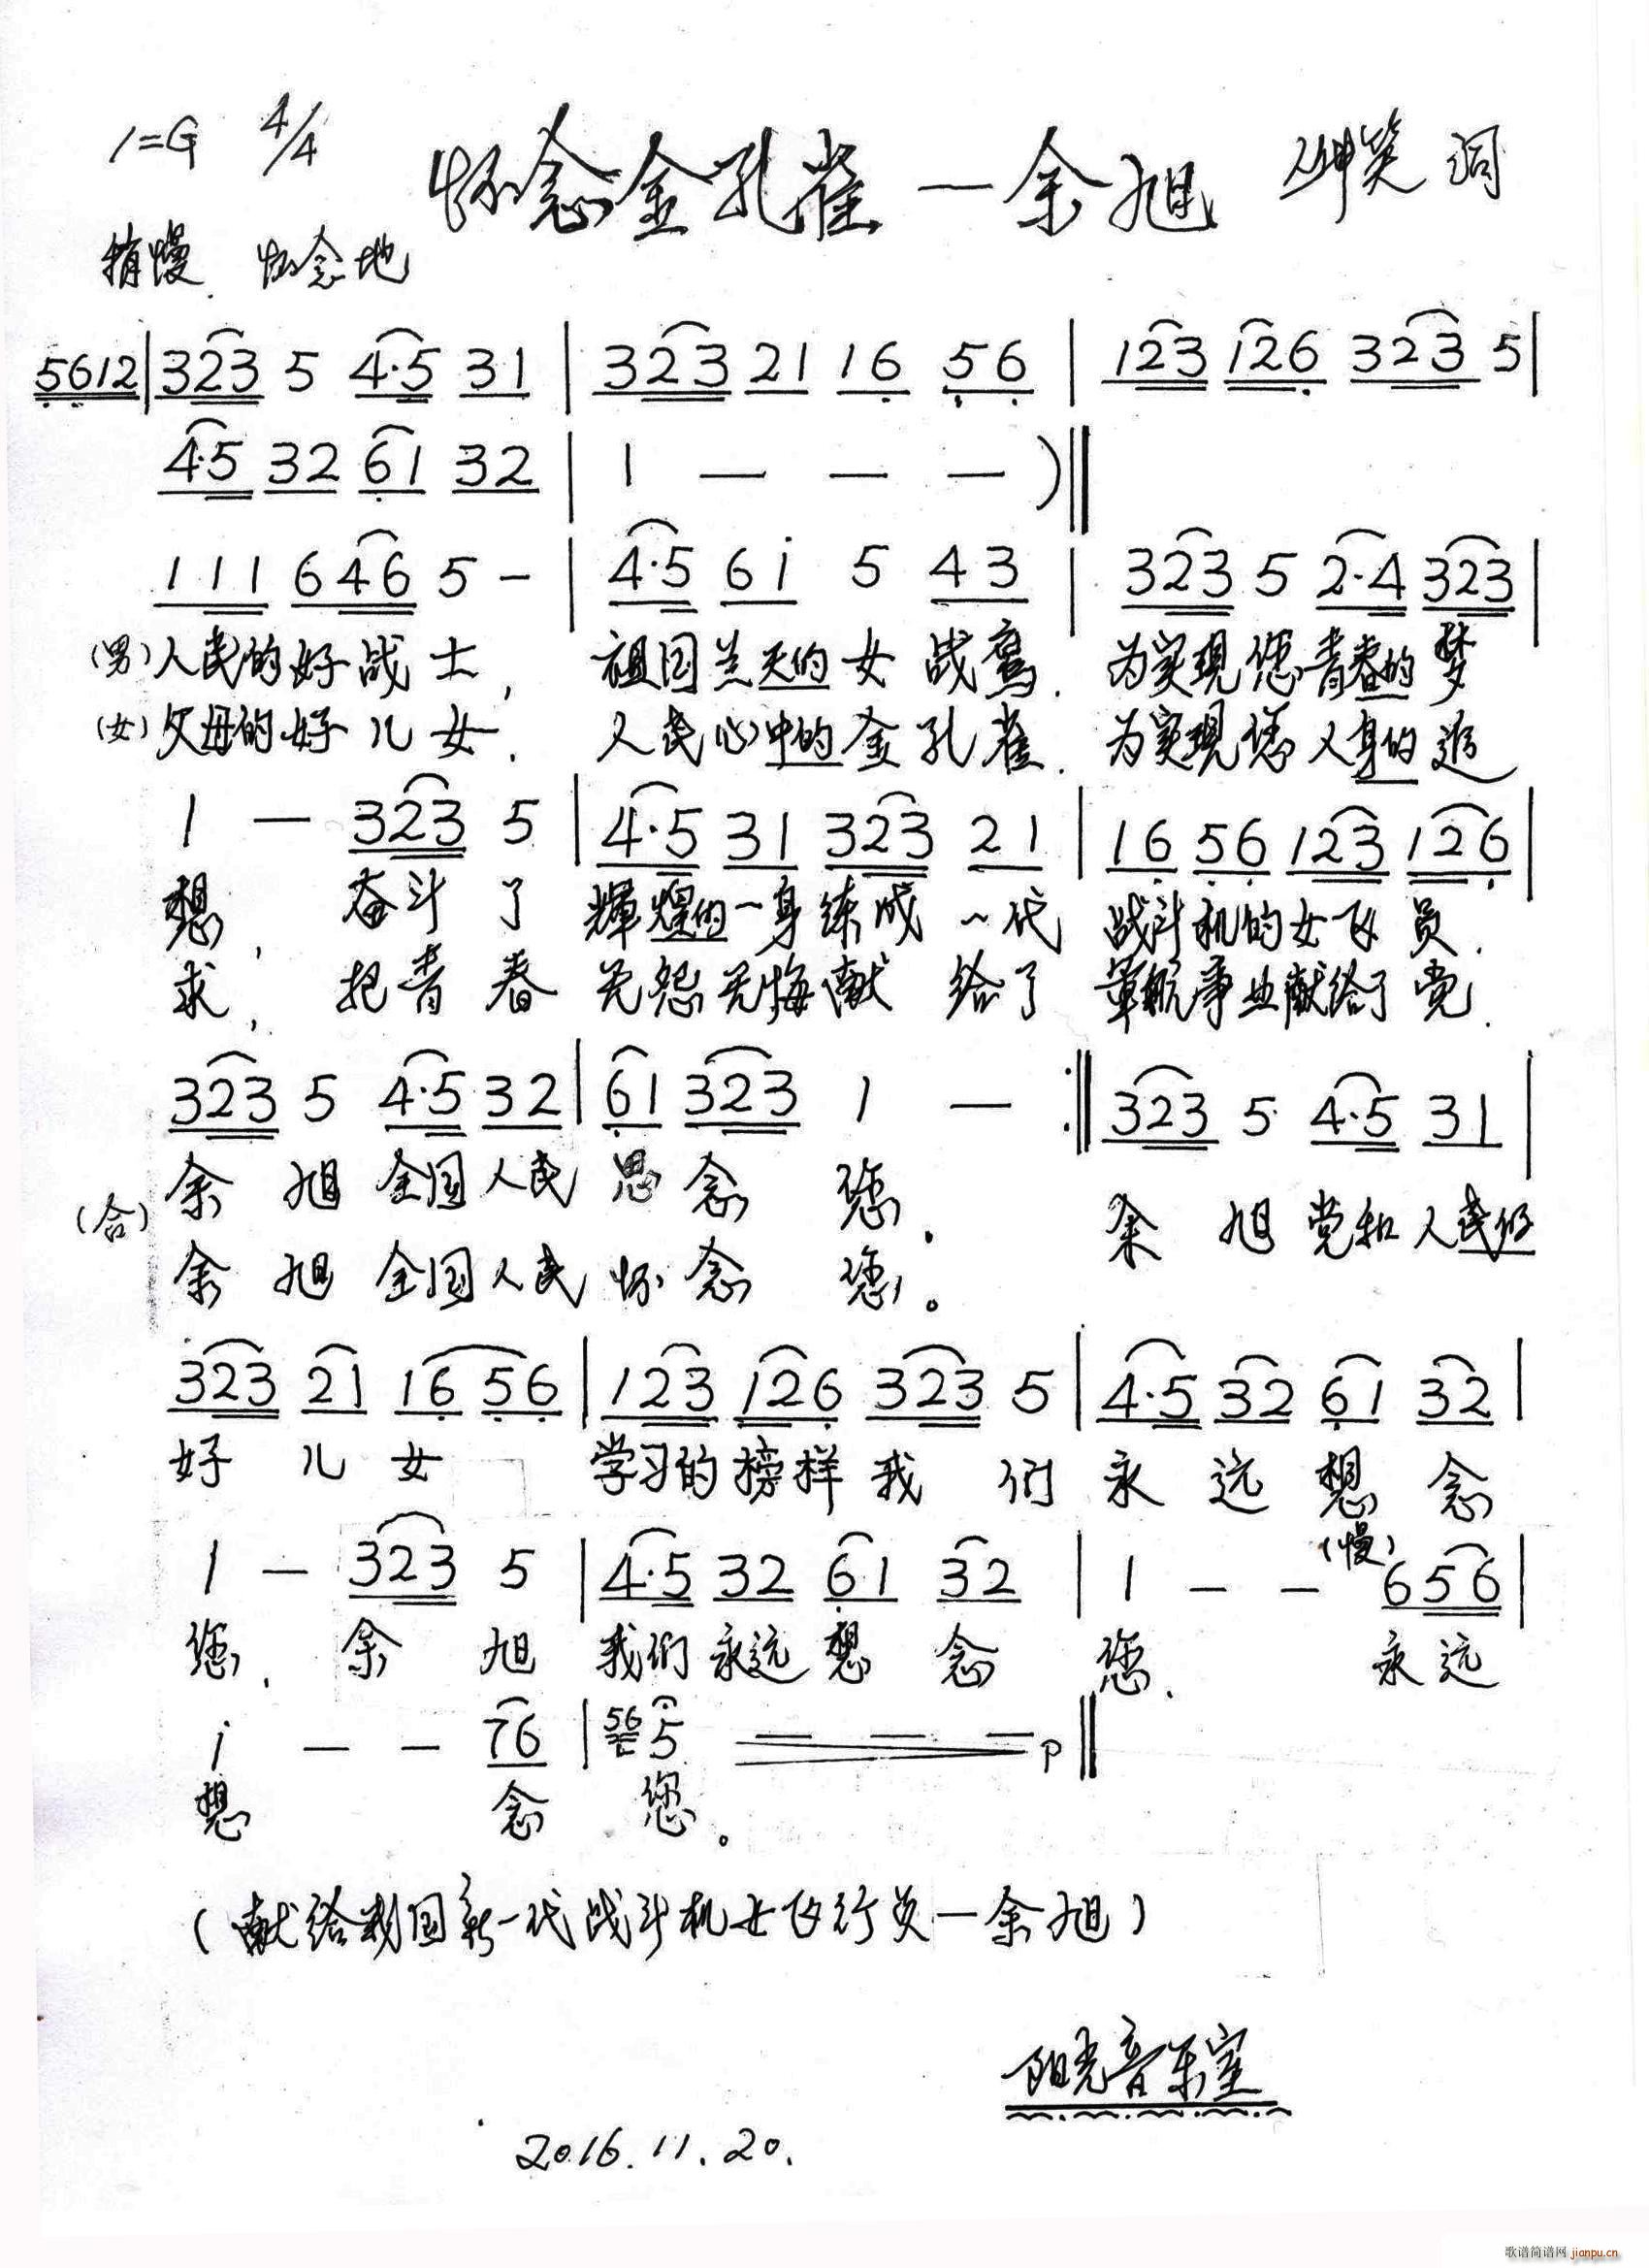 1=G 4/4
怀念金孔雀—余旭 词
稍慢 怀念地
5612|323 5 4·5 31|323 21 16 56|123 126 323 5|
4·5 32 61 32|1 — — —)‖
111 646 5 —|4·5 61 5 43|323 5 2·4 323|
(男)人民的好战士, 祖国兰天的女战鹰. 为实现您青春的梦
(女)父母的好儿女. 人民心中的金孔雀. 为实现您人身的追
1 — 323 5|4·5 31 323 21|16 56 123 126|
想, 奋斗了 辉煌的一身练成一代 战斗机的女飞员.
求, 把青春 无怨无悔献给了 军航事业献给了党.
323 5 4·5 32|61 323 1 — :‖323 5 4·5 31|
(合)余旭全国人民思念您. 余旭党和人民的
余旭全国人民怀念您。
323 21 16 56|123 126 323 5|4·5 32 61 32|
好儿女 学习的榜样我们永远想念
1 — 323 5|4·5 32 61 32|1 — — (慢) 656|
您. 余旭 我们永远想念 您. 永远
i — — 76|56 5 — — — p‖
想 念 您。
(献给我国新一代战斗机女飞行员—余旭)
阳光音乐室
2016.11.20.
歌谱简谱网 jianpu.cn